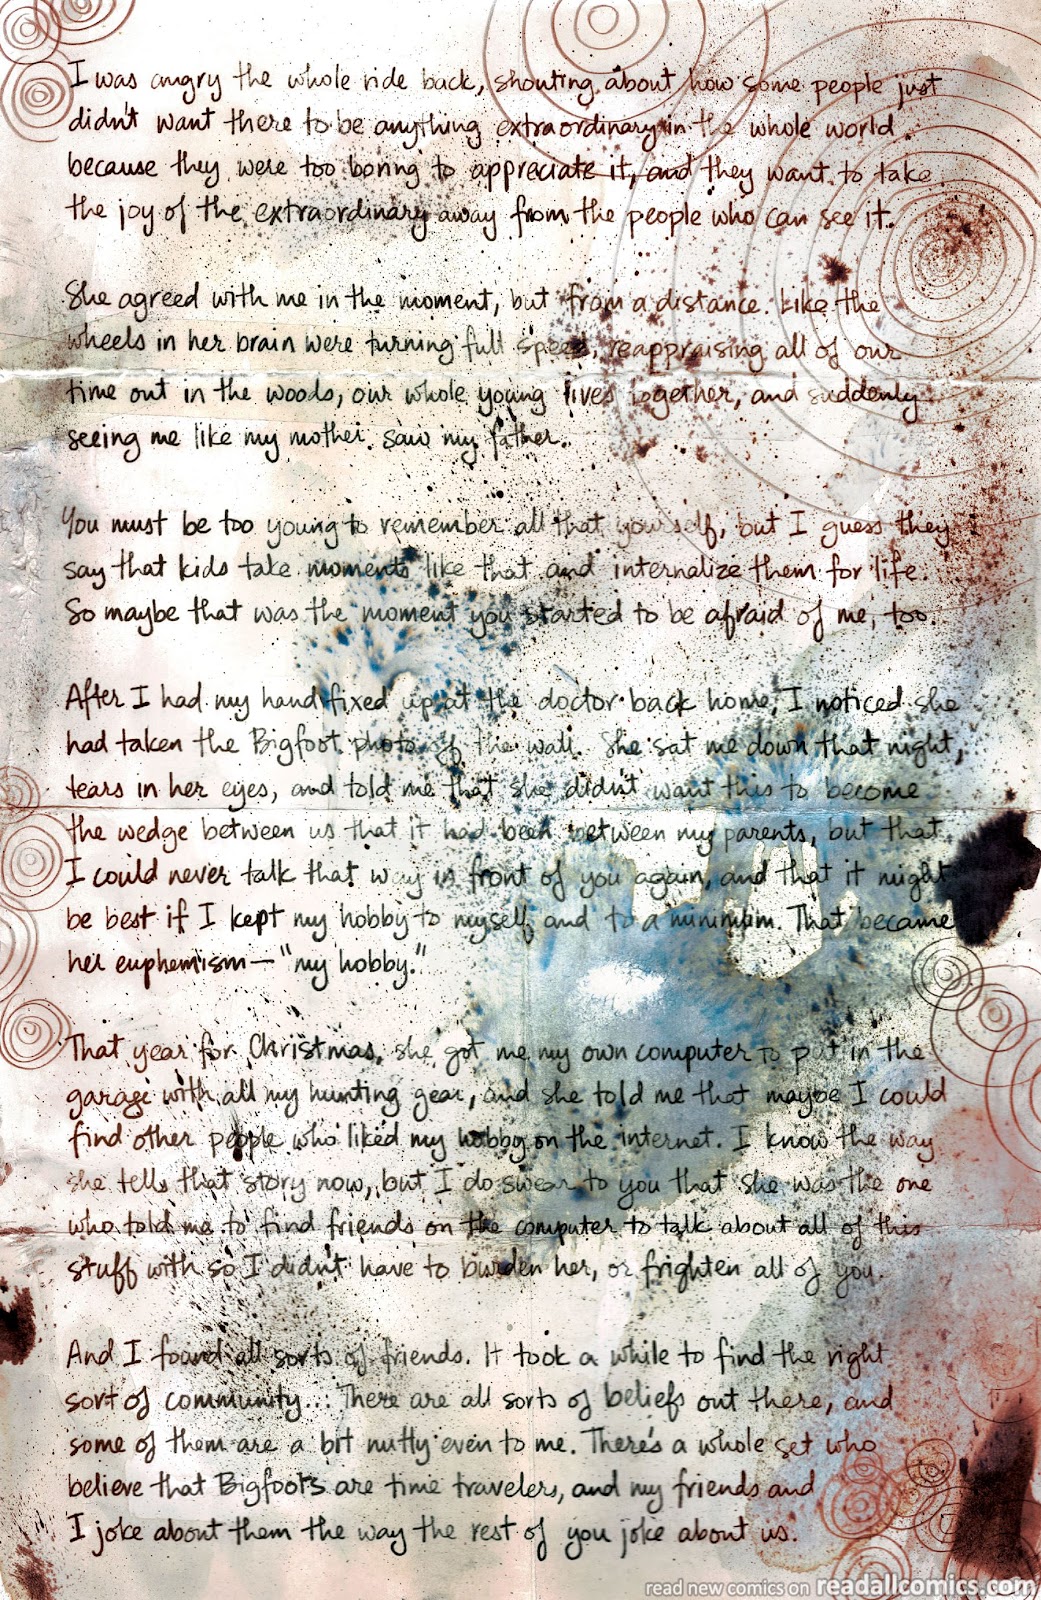 I was angry the whole ride back, shouting about how some people just
didn't want there to be anything extraordinary in the whole world
because they were too boring to appreciate it, and they want to take
the joy of the extraordinary away from the people who can see it.
She agreed with me in the moment, but from a distance. Like the
wheels in her brain were turning full speed, reappraising all of our
time out in the woods, our whole young lives together, and suddenly
seeing me like my mother saw my father.
You must be too young to remember all that yourself, but I guess they
say that kids take moments like that and internalize them for life.
So maybe that was the moment you started to be afraid of me, too.
After I had my hand fixed up at the doctor back home, I noticed she
had taken the Bigfoot photo off the wall. She sat me down that night,
tears in her eyes, and told me that she didn't want this to become
the wedge between us that it had been between my parents, but that
I could never talk that way in front of you again, and that it might
be best if I kept my hobby to myself and to a minimum. That became
her euphemism—"my hobby."
That year for Christmas, she got me my own computer to put in the
garage with all my hunting gear, and she told me that maybe I could
find other people who liked my hobby on the internet. I know the way
she tells that story now, but I do swear to you that she was the one
who told me to find friends on the computer to talk about all of this
stuff with so I didn't have to burden her, or frighten all of you.
And I found all sorts of friends. It took a while to find the right
sort of community... There are all sorts of beliefs out there, and
some of them are a bit nutty even to me. There's a whole set who
believe that Bigfoots are time travelers, and my friends and
I joke about them the way the rest of you joke about us.
read new comics on readallcomics.com